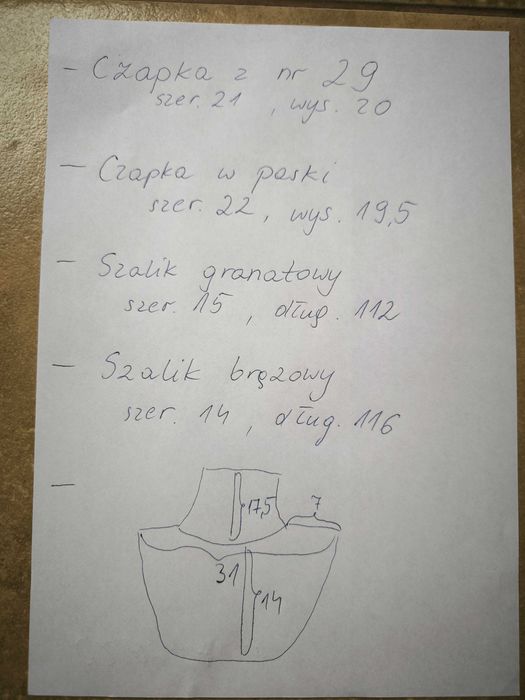 - Czapka z nr 29
szer. 21, wys. 20
- Czapka w paski
szer. 22, wys. 19,5
- Szalik granatowy
szer. 15, dług. 112
- Szalik brązowy
szer. 14, dług. 116
-
17,5
7
31
14